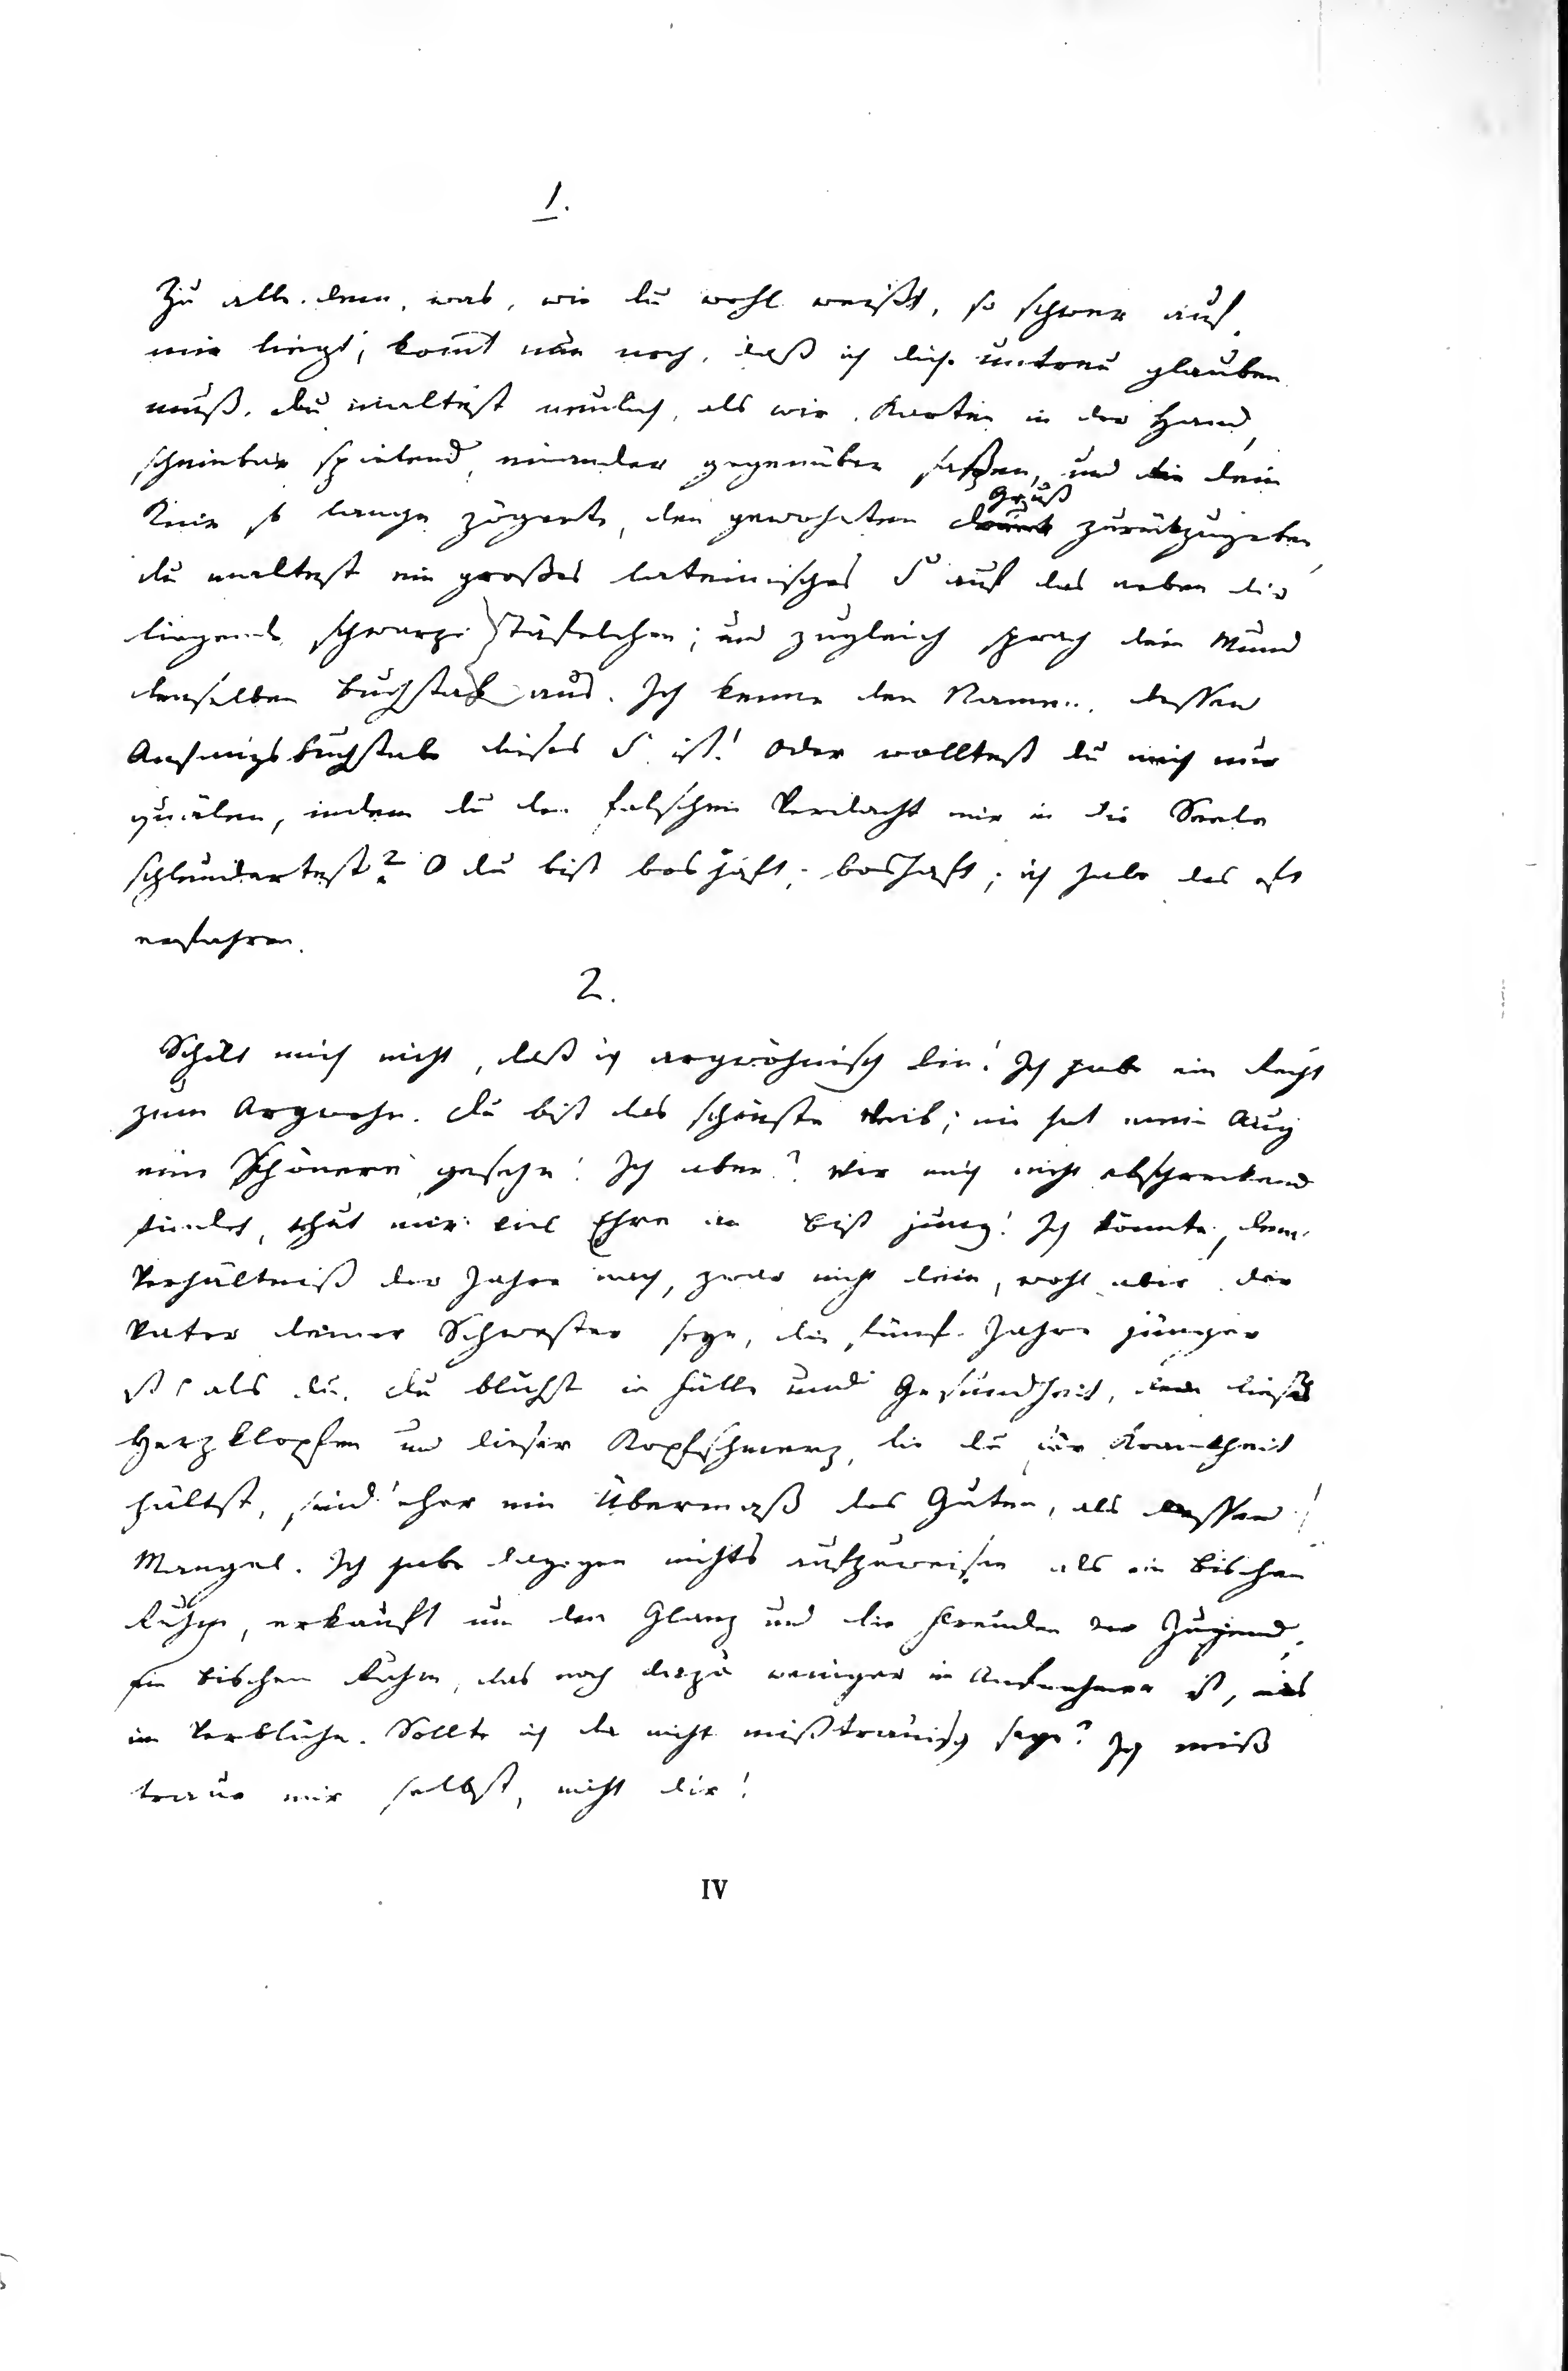 1.
Zu alle dem, was, wie du wohl weißt, so schwer auf
mir liegt, kom̄t nun noch, daß ich dich untreu glauben
muß. Du maltest neulich, als wir, Karten in der Hand,
scheinbar spielend, einander gegenüber saßen, und dein
Gruß
Knie so lange zögerte, den gewohnten Druck zurückzugeben,
du maltest ein großes lateinisches S auf das neben dir
liegende schwarze Täfelchen; und zugleich sprach dein Mund
denselben Buchstab aus. Ich kenne den Namen, dessen
Anfangsbuchstabe dieses S ist! Oder wolltest du mich nur
quälen, indem du den falschen Verdacht mir in die Seele
schleudertest? O du bist boshaft, boshaft; ich habe das oft
erfahren.
2.
Schilt mich nicht, daß ich argwöhnisch bin! Ich habe ein Recht
zum Argwohn. Du bist das schönste Weib; nie hat mein Aug
eine Schönere gesehn! Ich aber? Wer mich nicht abschreckend
findet, thut mir viel Ehre an. Bist jung! Ich könnte, dem
Verhältniß der Jahre nach, zwar nicht dein, wohl aber der
Vater deiner Schwester seyn, die fünf Jahre jünger
ist als du. Du blühst in Fülle und Gesundheit, denn dieses
Herzklopfen und dieser Kopfschmerz, die du für Krankheit
hältst, sind eher ein Übermaß des Guten, als dessen
Mangel. Ich habe dagegen nichts aufzuweisen als ein bischen
Ruhm, erkauft um den Glanz und die Freuden der Jugend,
ein bischen Ruhm, das noch dazu weniger im Aufnehmen ist, als
im Verblühn. Sollte ich da nicht mißtrauisch seyn? Ich miß
traue mir selbst, nicht dir!
IV